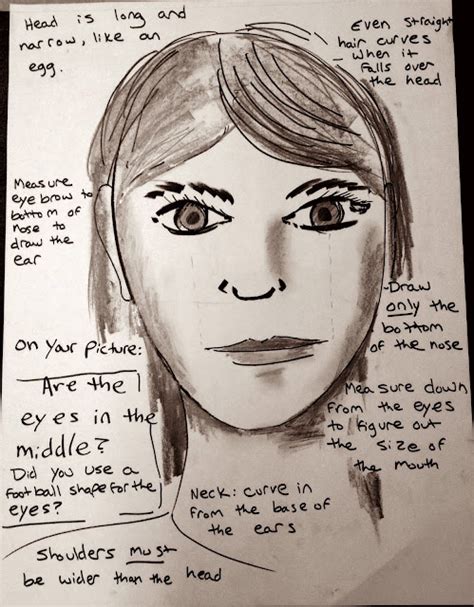 Head is long and
narrow, like an
egg.
Even straight
hair curves
when it
falls over
the head
Measure
eye brow to
bottom of
nose to
draw the
ear
Draw
only the
bottom
of the nose
on your picture:
Are the
eyes in the
middle?
Did you use a
football shape for the
eyes?
Measure down
from the eyes
to figure out
the size of
the mouth
Neck: curve in
from the base of
the ears
Shoulders must
be wider than the head